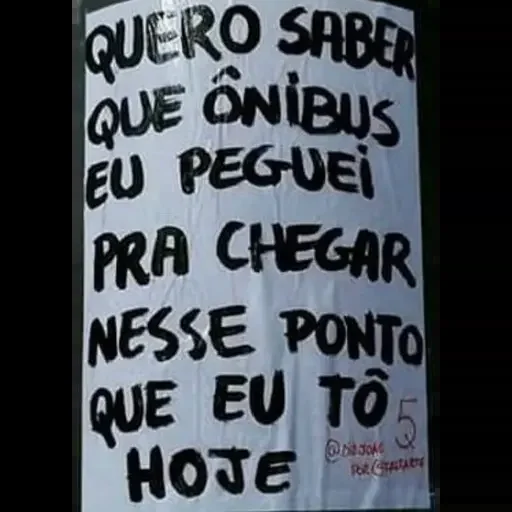 QUERO SABER
QUE ÔNIBUS
EU PEGUEI
PRA CHEGAR
NESSE PONTO
QUE EU TÔ
HOJE
5